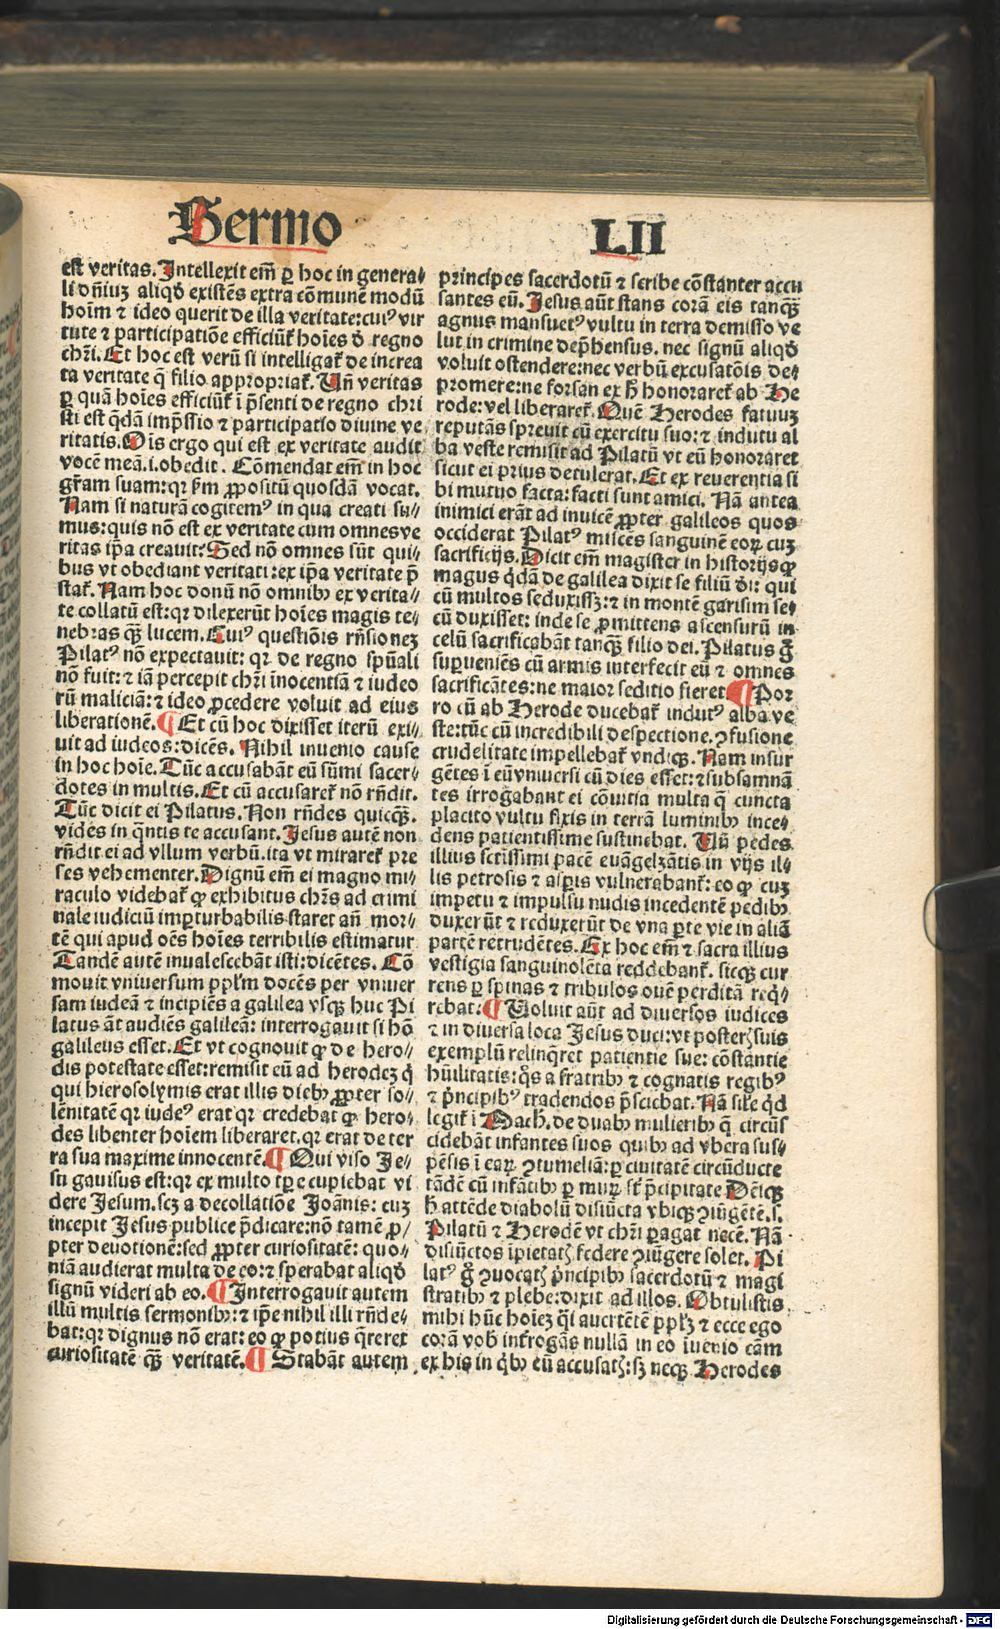 Sermo
LII
est veritas. Intellexit em̄ ꝑ hoc in genera⸗
li dn̄iuꝫ aliqd̄ existēs extra cōmunē modū
hoīm ⁊ ideo querit de illa veritate: cuiꝰ vir
tute ⁊ participatiōe efficiūt̄ hoīes ď regno
chr̄i. Et hoc est verū si intelligat̄ de increa
ta veritate q̄ filio appropriat̄. Vn̄ veritas
ꝑ quā hoīes efficiūt̄ ī p̄senti de regno chri
sti est q̄dā imp̄ssio ⁊ participatio diuine ve
ritatis. Oīs ergo qui est ex veritate audit
vocē meā .i. obedit. Cōmendat em̄ in hoc
gr̄am suam: qꝛ ẜm ꝓpositū quosdā vocat.
Nam si naturā cogitemꝰ in qua creati su⸗
mus: quis nō est ex veritate cum omnes ve
ritas ip̄a creauit? Sed nō omnes sūt qui⸗
bus vt obediant veritati: ex ip̄a veritate p̄
stat̄. Nam hoc donū nō omnibꝰ ex verita⸗
te collatū est: qꝛ dilexerūt hoīes magis te⸗
nebras qꝫ̄ lucem. Cuiꝰ questiōis rn̄sionez
Pilatꝰ nō expectauit: qꝛ de regno spūali
nō fuit: ⁊ iā percepit chr̄i īnocentiā ⁊ iudeo
rū maliciā: ⁊ ideo ꝓcedere voluit ad eius
liberationē. ¶ Et cū hoc dixisset iterū exi⸗
uit ad iudeos: dicēs. Nihil inuenio cause
in hoc hoīe. Tūc accusabāt eū sūmi sacer⸗
dotes in multis. Et cū accusaret̄ nō rn̄dit.
Tūc dicit ei Pilatus. Non rn̄des quicqꝫ̄.
vides in q̄ntis te accusant. Jesus autē non
rn̄dit ei ad vllum verbū. ita vt miraret̄ pre
ses vehementer. Dignū em̄ ei magno mi⸗
raculo videbat̄ ꝙ exhibitus chr̄s ad crimi
nale iudiciū imꝑturbabilis staret an̄ mor⸗
tē qui apud oēs hoīes terribilis estimatur
Tandē autē inualescebāt isti: dicētes. Cō
mouit vniuersum ppl̄m docēs per vniuer
sam iudeā ⁊ incipiēs a galilea vsqꝫ huc Pi
latus āt audiēs galileā: interrogauit si hō
galileus esset. Et vt cognouit ꝙ de hero⸗
dis potestate esset: remisit eū ad herodeꝫ q̇
qui hierosolymis erat illis diebꝰ ꝓpter so⸗
lēnitatē qꝛ iudeꝰ erat qꝛ credebat ꝙ hero⸗
des libenter hoīem liberaret. qꝛ erat de ter
ra sua maxime innocentē. ¶ Qui viso Je⸗
su gauisus est: qꝛ ex multo tꝑe cupiebat vi
dere Jesum. scꝫ a decollatiōe Joānis: cuꝫ
incepit Jesus publice p̄dicare: nō tamē ꝓ⸗
pter deuotionē: sed ꝓpter curiositatē: quo⸗
niā audierat multa de eo: ⁊ sperabat aliqd̄
signū videri ab eo. ¶ Interrogauit autem
illū multis sermonibꝰ: ⁊ ipe nihil illi rn̄de⸗
bat: qꝛ dignus nō erat: eo ꝙ potius q̄reret
curiositatē qꝫ̄ veritatē. ¶ Stabāt autem
principes sacerdotū ⁊ scribe cōstanter accu
santes eū. Jesus aūt stans corā eis tanqꝫ̄
agnus mansuetꝰ vultu in terra demisso ve
lut in crimine dep̄hensus. nec signū aliqd̄
voluit ostendere: nec verbū excusatōis de⸗
promere: ne forsan ex h̄ honoraret̄ ab He
rode: vel liberaret̄. Quē Herodes fatuuꝫ
reputās spreuit cū exercitu suo: ⁊ indutū al
ba veste remisit ad Pilatū vt eū honoraret
sicut ei prius detulerat. Et ex reuerentia si
bi mutuo facta: facti sunt amici. Nā antea
inimici erāt ad inuicē ꝓpter galileos quos
occiderat Pilatꝰ miscēs sanguinē eoꝝ cuꝫ
sacrificijs. Dicit em̄ magister in historijs ꝙ
magus q̇dā de galilea dixit se filiū d̄i: qui
cū multos seduxissꝫ: ⁊ in montē garisim se⸗
cū duxisset: inde se ꝓmittens ascensurū in
celū sacrificabāt tanqꝫ̄ filio dei. Pilatus g̊
suꝑueniēs cū armis interfecit eū ⁊ omnes
sacrificātes: ne maior seditio fieret ¶ Por
ro cū ab Herode ducebat̄ indutꝰ alba ve
ste: tūc cū incredibili despectione. ꝯfusione
crudelitate impellebat̄ vndiqꝫ. Nam insur
gētes ī eū vniuersi cū dies esset: ⁊ subsannā
tes irrogabant ei cōuitia multa q̄ cuncta
placito vultu fixis in terrā luminibꝰ ince⸗
dens patientissime sustinebat. Vn̄ pedes
illius sct̄issimi pacē euāgelzātis in vijs il⸗
lis petrosis ⁊ asꝑis vulnerabant̄: eo ꝙ cuꝫ
impetu ⁊ impulsu nudis incedentē pedibꝰ
duxerūt ⁊ reduxerūt de vna ꝑte vie in aliā
partē retrudētes. Ex hoc em̄ ⁊ sacra illius
vestigia sanguinolēta reddebant̄. sicqꝫ cur
rens ꝑ spinas ⁊ tribulos ouē perditā req̇⸗
rebat: ¶ Voluit aūt ad diuersos iudices
⁊ in diuersa loca Jesus duci: vt posterꝭ suis
exemplū relinq̄ret patientie sue: cōstantie
hūilitatis: q̄s a fratribꝰ ⁊ cognatis regibꝰ
⁊ p̄ncipibꝰ tradendos p̄sciebat. Nā sil̄e q̇d
legit̄ ī Mach. de duabꝰ mulieribꝰ q̄ circūs
cidebāt infantes suos quibꝰ ad vbera sus⸗
pēsis ī eaꝝ ꝯtumeliā: ꝑ ciuitatē circūducte
tādē cū infātibꝰ ꝑ muꝝ st̄ p̄cipitate Deīqꝫ
h̄ attēde diabolū disiūcta vbiqꝫ ꝯiūgētē .s.
Pilatū ⁊ Herodē vt chr̄i ꝑagat necē. Nā
disiūctos īpietatꝭ federe ꝯiūgere solet. Pi
latꝰ g̊ ꝯuocatꝭ p̄ncipibꝰ sacerdotū ⁊ magi
stratibꝰ ⁊ plebe: dixit ad illos. Obtulistis
mihi hūc hoīeꝫ q̄i auertētē pplꝫ ⁊ ecce ego
corā vob̄ īnt̄rogās nullā in eo īuenio cām
ex his in q̇bꝰ eū accusatꝭ: sꝫ neqꝫ Herodes
Digitalisierung gefördert durch die Deutsche Forschungsgemeinschaft - DFG